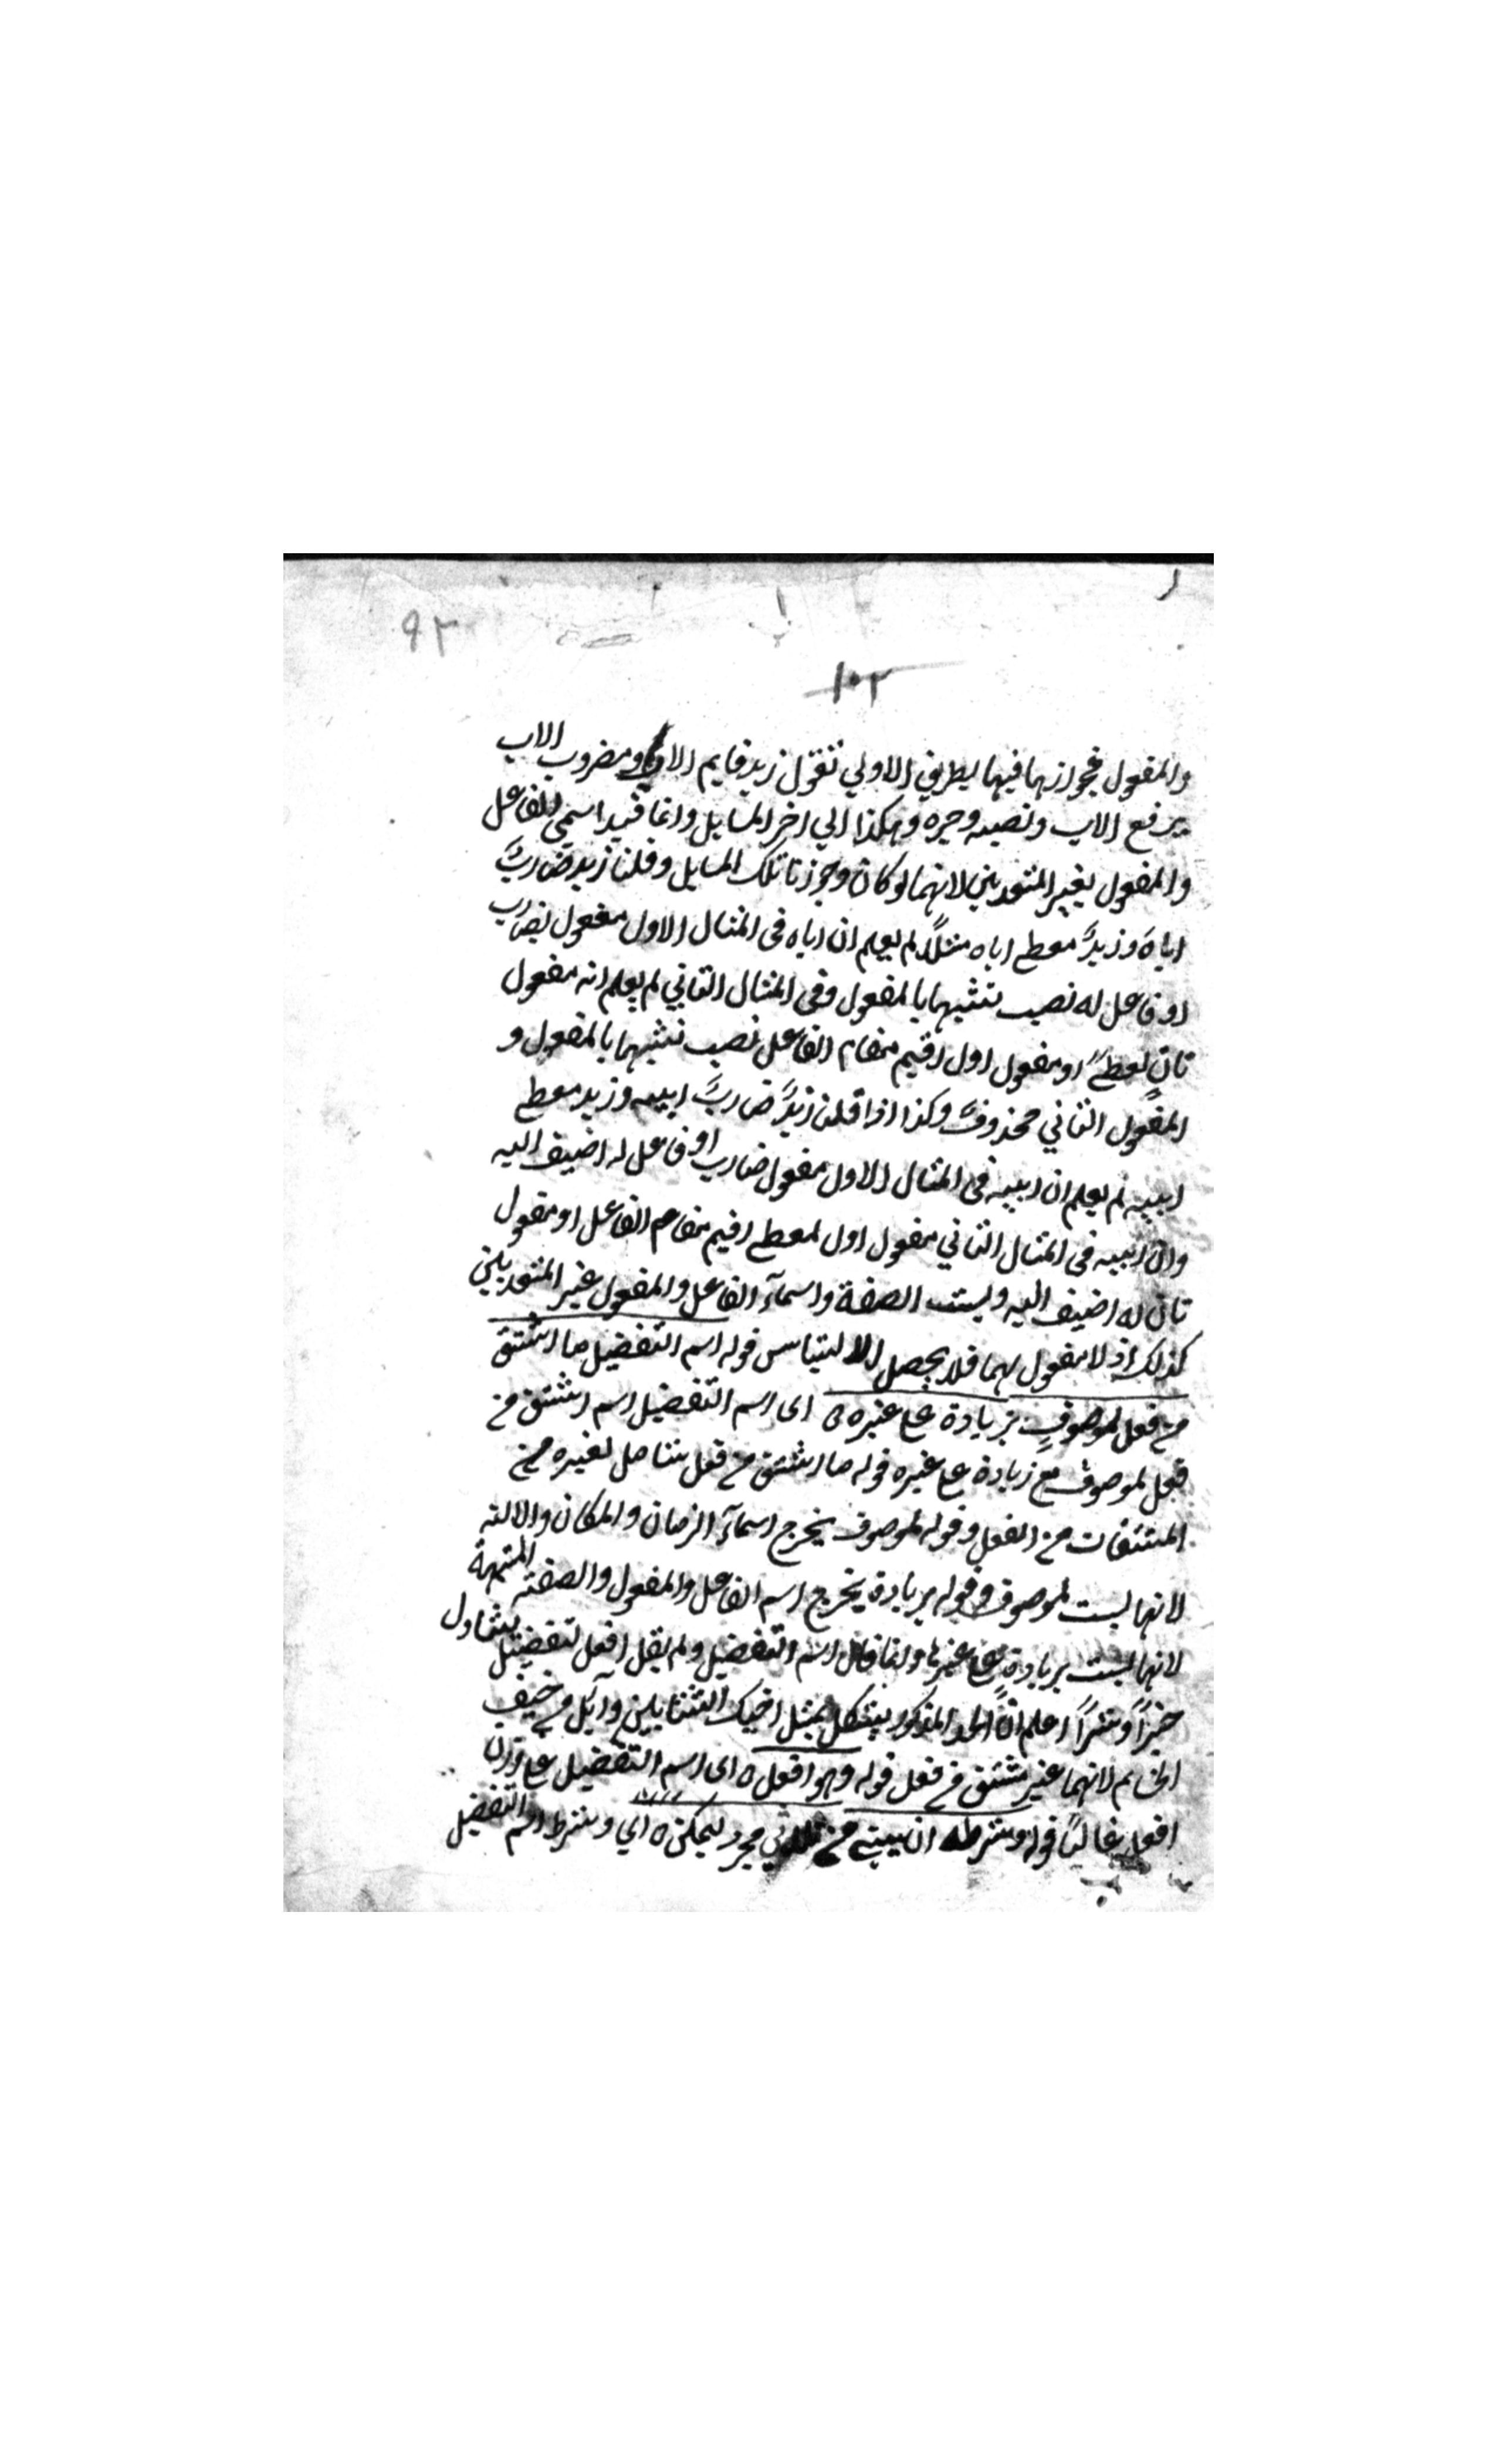 ٩٢
١٠٢
والمفعول فجوازهما فيهما بطريق الاولي تقول زيد قايم الاب ومضروب الاب
برفع الاب ونصبه وجره وهكذا الي اخر المسايل وانما قيد اسمي الفاعل
والمفعول بغير المتعديين لانهما لو كان وجوزنا تلك المسايل وقلنا زيد ضارب
اباه وزيد معط اباه مثلا لم يعلم ان اباه فى المثال الاول مفعول لضارب
او فاعل له نصب تشبيها بالمفعول وفى المثال الثاني لم يعلم انه مفعول
ثان لمعط او مفعول اول اقيم مقام الفاعل نصب تشبيها بالمفعول و
المفعول الثاني محذوف وكذا اذا قلنا زيد ضارب ابيه وزيد معط
ابيه لم يعلم ان ابيه فى المثال الاول مفعول ضارب او فاعل له اضيف اليه
وان ابيه فى المثال الثاني مفعول اول لمعط اقيم مقام الفاعل او مفعول
ثان له اضيف اليه وليست الصفة واسماء الفاعل والمفعول غير المتعديين
كذلك اذ لا مفعول لهما فلا يحصل الالتباس قوله اسم التفضيل ما اشتق
من فعل لموصوف بزيادة على غيره اى اسم التفضيل اسم اشتق من
فعل لموصوف مع زيادة على غيره قوله ما اشتق من فعل شامل لغيره من
المشتقات من الفعل وقوله لموصوف يخرج اسماء الزمان والمكان والالة
لانها ليست لموصوف وقوله بزيادة يخرج اسم الفاعل والمفعول والصفة المشبهة
لانها ليست بزيادة على غيرها وانما قال اسم التفضيل ولم يقل افعل التفضيل ليتناول
خيرا وشرا اعلم ان الحد المذكور يشكل بمثل احنك الشاتين وآبل من حنيف
الحناتم لانهما غير مشتق من فعل قوله وهو افعل اى اسم التفضيل على وزن
افعل غالبا قوله وشرطه ان يبنى من ثلاثي مجرد ليمكن اي وشرط اسم التفضيل